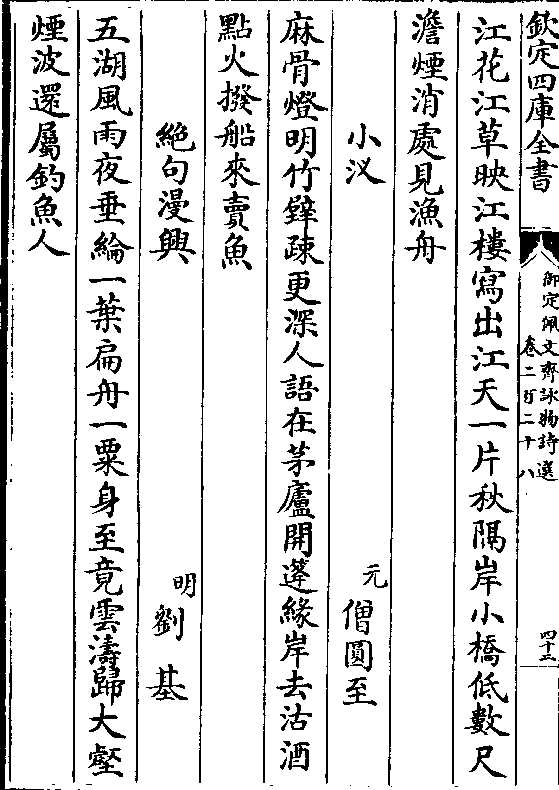 欽定四庫全書
御定佩文齊詠物詩選
卷二百二十八
四十二
江花江草映江樓寫出江天一片秋隔岸小橋低數尺
澹煙消處見漁舟
小汊
元僧圓至
麻骨燈明竹鐴疎更深人語在茅廬開蓬緣岸去沽酒
點火撥船來賣魚
絶句漫興
明劉基
五湖風雨夜垂綸一葉扁舟一粟身至竟雲濤歸大壑
煙波還屬釣魚人